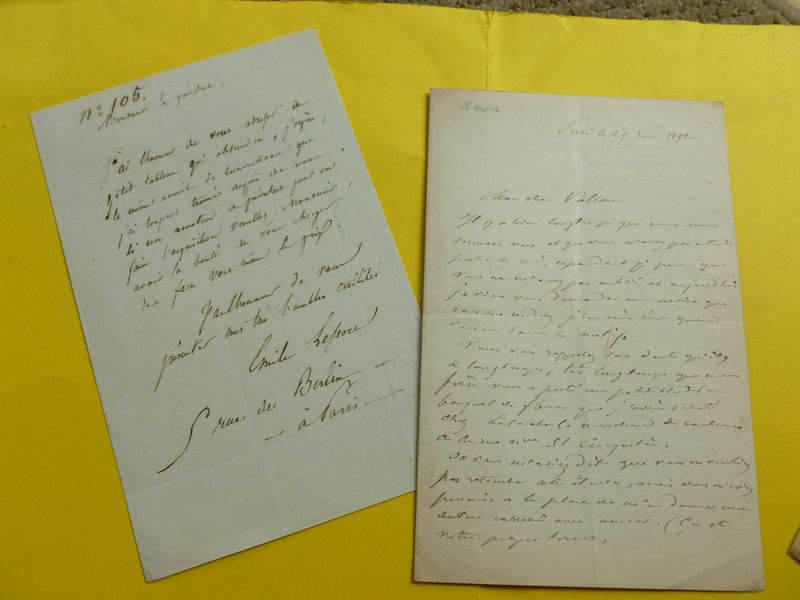 nº 105.
Monsieur le président,
J'ai l'honneur de vous adresser ce
petit tableau qui obtiendra, j'espère,
le même accueil de bienveillance que
j'ai toujours trouvé auprès de vous.
Si un amateur se présentait pour en
faire l'acquisition veuillez, Monsieur,
avoir la bonté de vous charger
d'en faire vous même le prix.
J'ai l'honneur de vous
présenter mes très humbles civilités
Emile Lessore
5 rue de Berlin
à Paris
Lessore
Paris le 29 Juin 1892
Mon cher Vollon
Il y a bien longtemps que nous nous
sommes vus et que vous n'avez pas entendu
parler de moi, cependant je pense que
vous ne m'avez pas oublié et aujourd'hui
je viens vous demander un service que
vous me rendrez j'en suis sûr quand
vous en saurez le motif.
Vous vous rappelez sans doute qu'il y
a longtemps, très longtemps que mon
frère vous a porté une petite étude d'un
bouquet de fleurs que j'avais acheté
chez le marchand de couleurs
de la rue St Augustin.
Or vous m'aviez dit que vous ne vouliez
pas retoucher cette étude, mais vous m'aviez
promis, à la place de m'en donner une
autre
votre propre